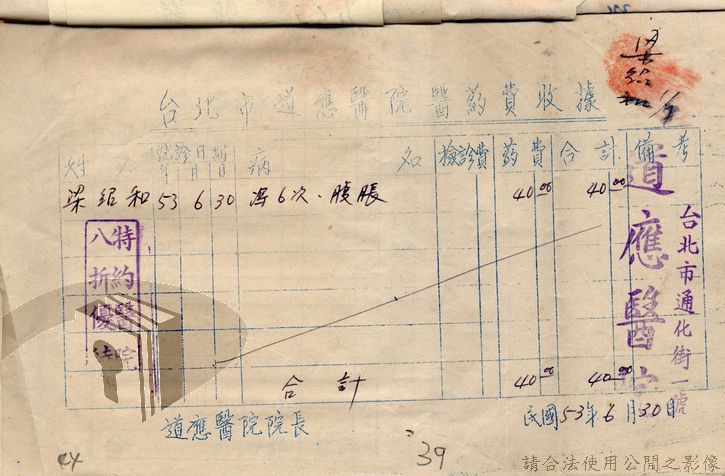 台北市道應醫院醫葯費收據
姓 名 診年 診月 日期 病 名 檢診費 葯費 合計 備考
梁紹和 53 6 30 瀉6次、腹脹 40.00 40.00
特約醫院
八折優
道應醫院
台北市通化街一號
合計 40.00 40.00
道應醫院院長
民國53年6月30日
44
39
請合法使用公開之影像